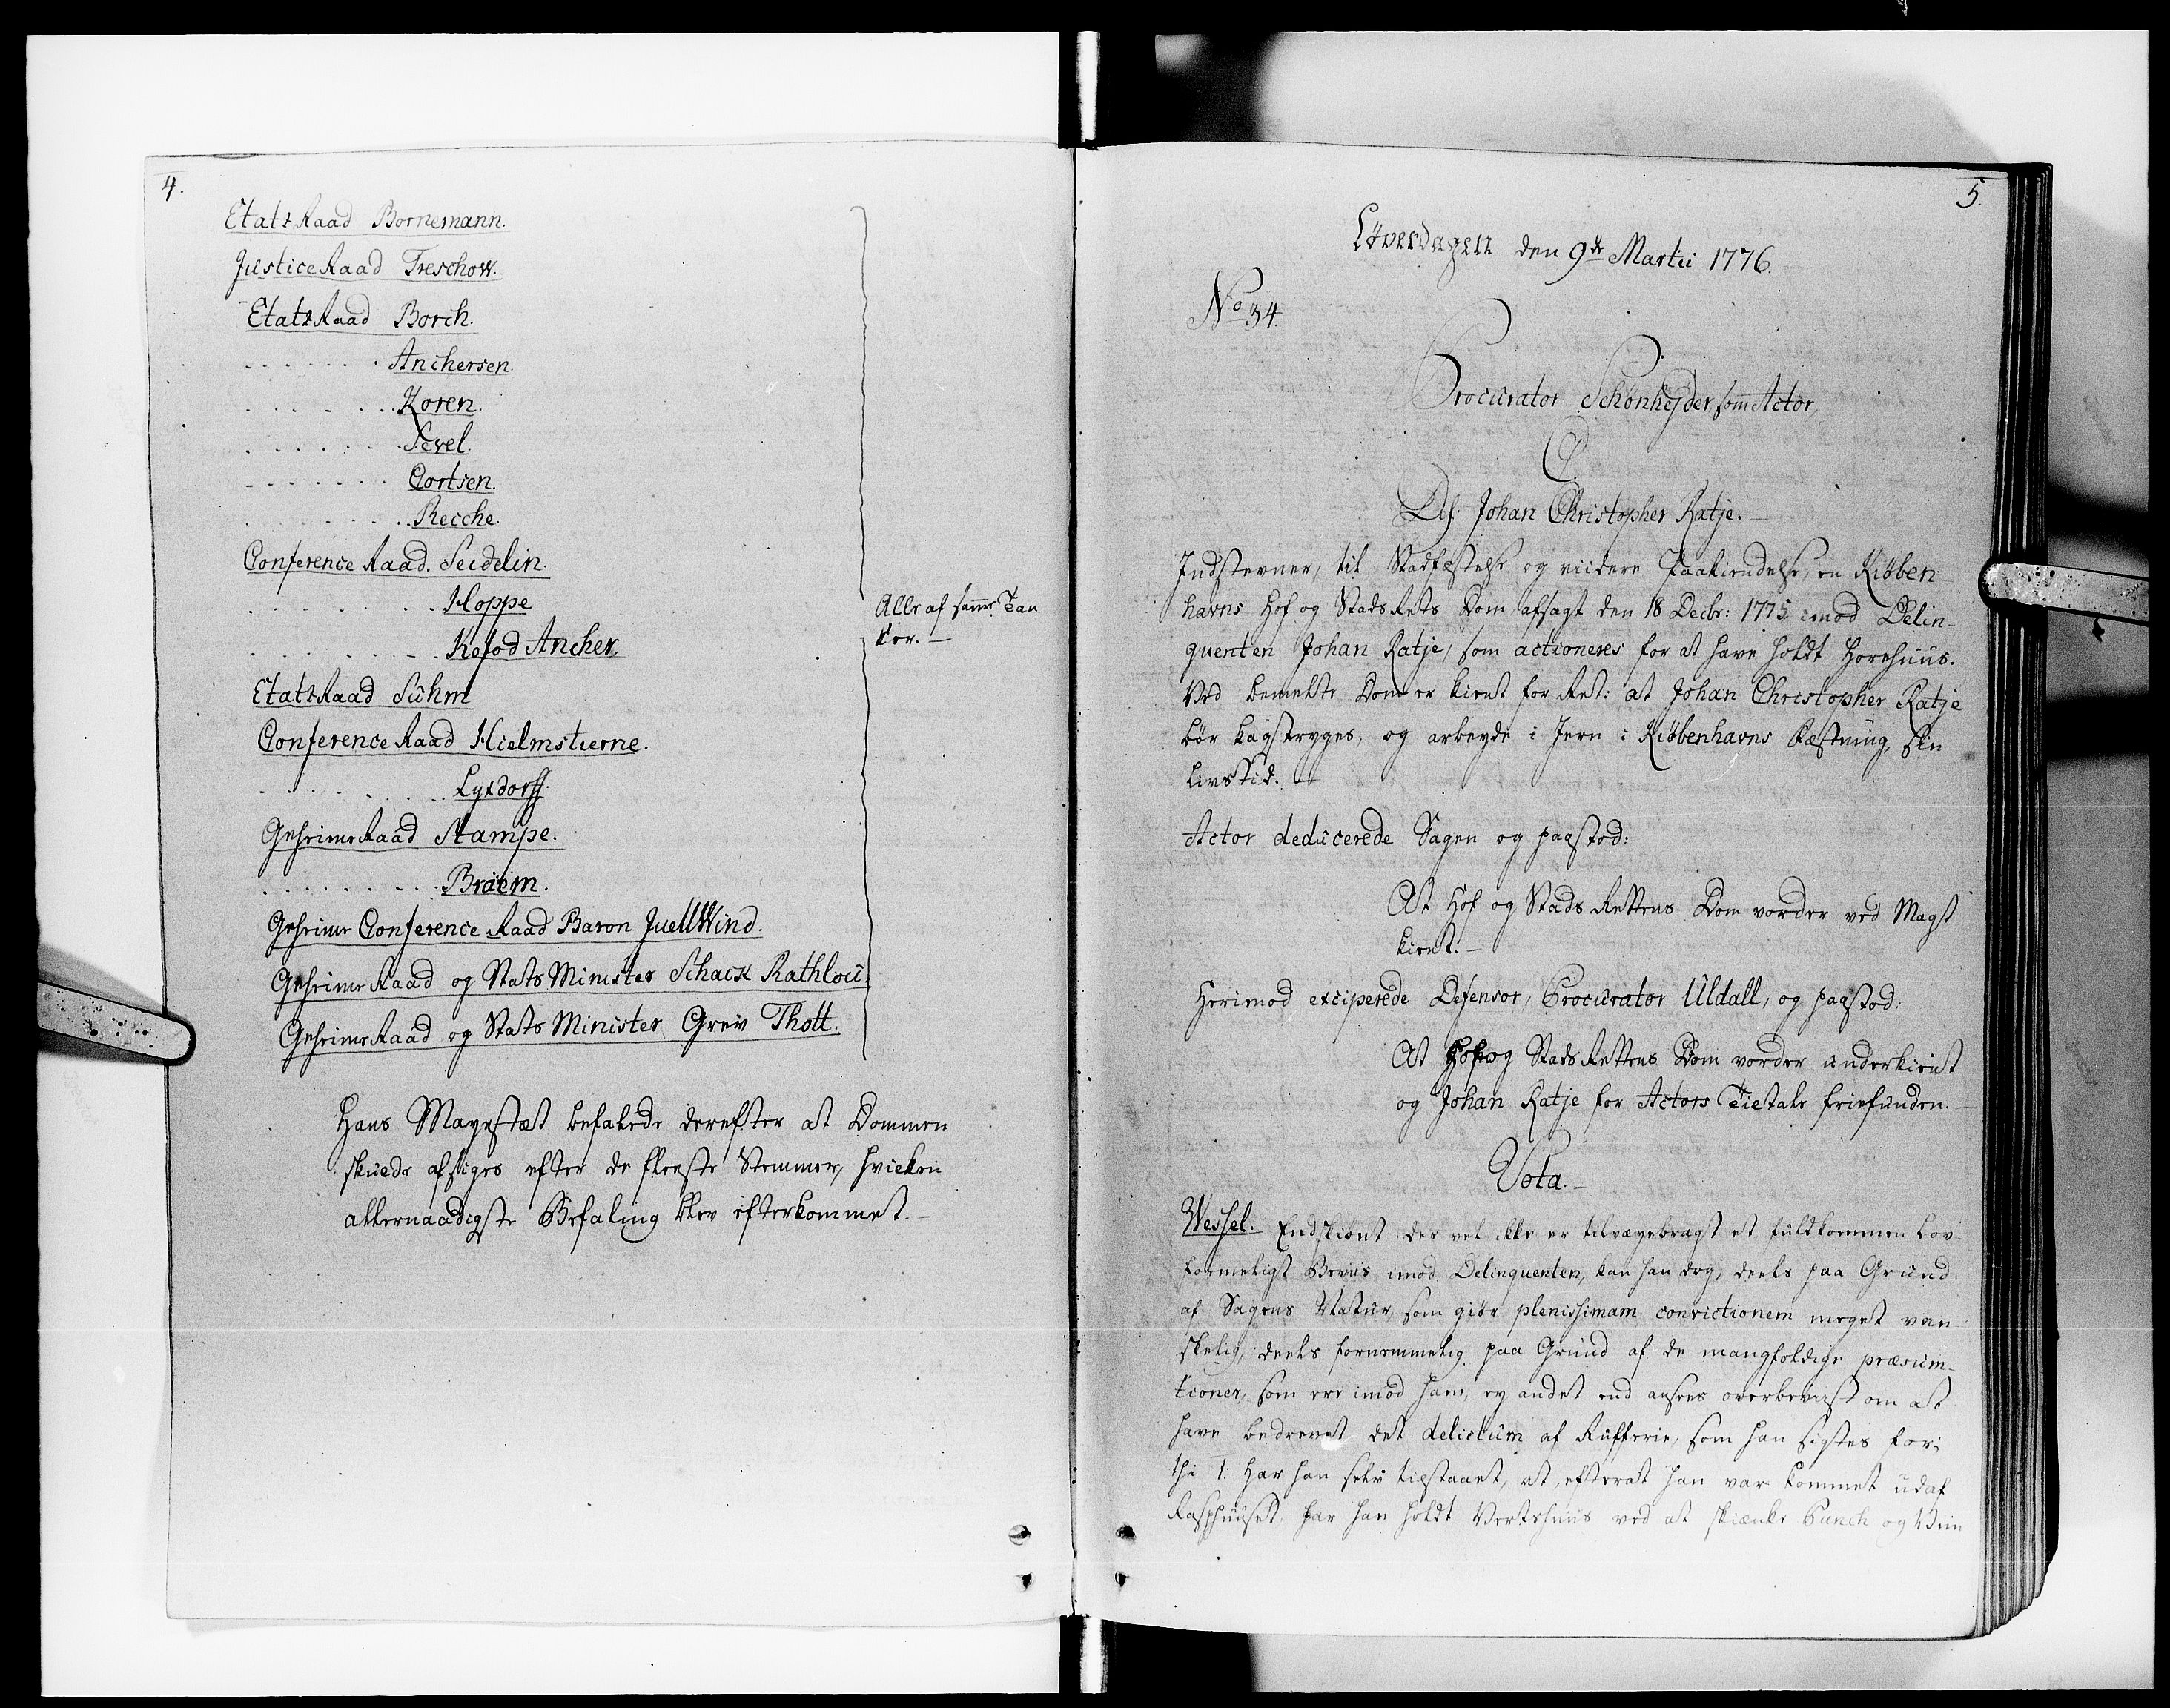 4.
EtatzRaad Bornemann.
JusticeRaad Treschow.
EtatzRaad Borch.
. . . . . . . Anchersen.
. . . . . . . Koren.
. . . . . . . Sevel.
. . . . . . . Cortsen.
. . . . . . . Reiche.
Conference Raad. Seidelin.
. . . . . . . Hoppe
. . . . . . . Kofod Ancher.
Alle af samme Tan
ker.
EtatzRaad Suhm
Conference Raad Hielmstierne.
. . . . . . . Lyxdorff.
GeheimeRaad Stampe.
. . . . . . . Braem.
Geheime Conference Raad Baron JuellWind.
Geheime Raad og Stats Minister Schack Rathlou.
GeheimeRaad og Stats Minister Grev Thott.
Hans Mayestæt befalede derefter at Dommen
skulde afsiges efter de fleeste Stemmer, hvilken
allernaadigste Befaling blev efterkommet.
5.
Løverdagen den 9de Martii 1776.
No 34.
Procurator Schönheyder, som Actor,
C/
Del. Johan Christopher Ratje.
Indstevner, til Stadfæstelse og viidere Paakiendelse, en Kiøben
havns Hof og StadsRets Dom afsagt den 18 Decbr: 1775 imod Delin-
quenten Johan Ratje, som actioneres for at have holdt Horehuus.
Ved bemelte Dom er kient for Ret: at Johan Christopher Ratje
bør kagstryges, og arbeyde i Jern i Kiøbenhavns Fæstning, sin
Livstid.
Actor deducerede Sagen og paastod:
At Hof og Stads Rettens Dom vorder ved Magt
kient.
Herimod exciperede Defensor, Procurator Uldall, og paastod:
At Hof og StadsRettens Dom vorder underkient
og Johan Ratje for Actors Tiltale friefunden.
Vota.
Wessel. Endskiønt der vel ikke er tilvæyebragt et fuldkommen Lov-
formeligt Beviis imod Delinquenten, kan han dog, deels paa Grund
af Sagens Natur, som giør plenissimam convictionem meget van-
skelig, deels fornemmelig paa Grund af de mangfoldige præsum-
tioner, som ere imod ham, ey andet end ansees overbeviist om at
have bedrevet det delictum af Rufferie, som han sigtes for;
thi 1: Har han selv tilstaaet, at, efterat han var kommet udaf
Rasphuuset, har han holdt Vertshuus ved at skiænke Punch og Viin